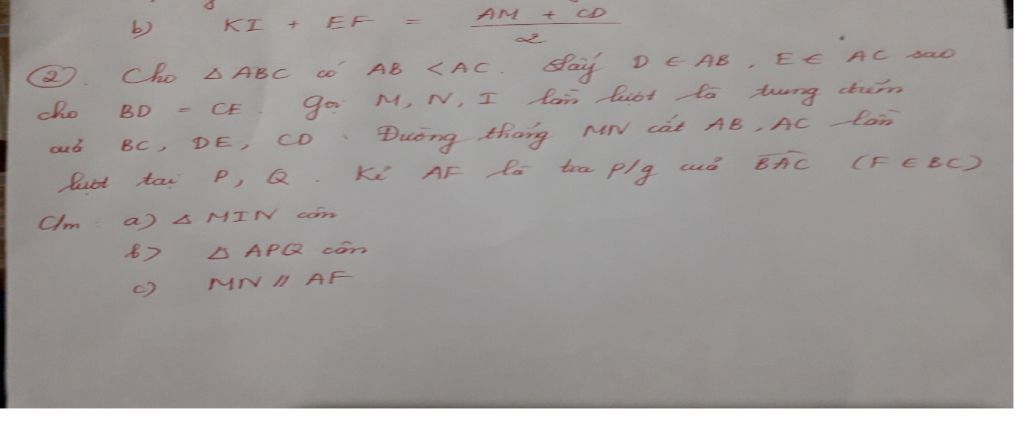 b) KI + EF = AM + CD / 2
②. Cho △ ABC có AB < AC. Lấy D ∈ AB, E ∈ AC sao
cho BD = CE. Gọi M, N, I lần lượt là trung điểm
của BC, DE, CD. Đường thẳng MN cắt AB, AC lần
lượt tại P, Q. Kẻ AF là tia p/g của BAC (F ∈ BC)
C/m: a) △ MIN cân
b) △ APQ cân
c) MN // AF